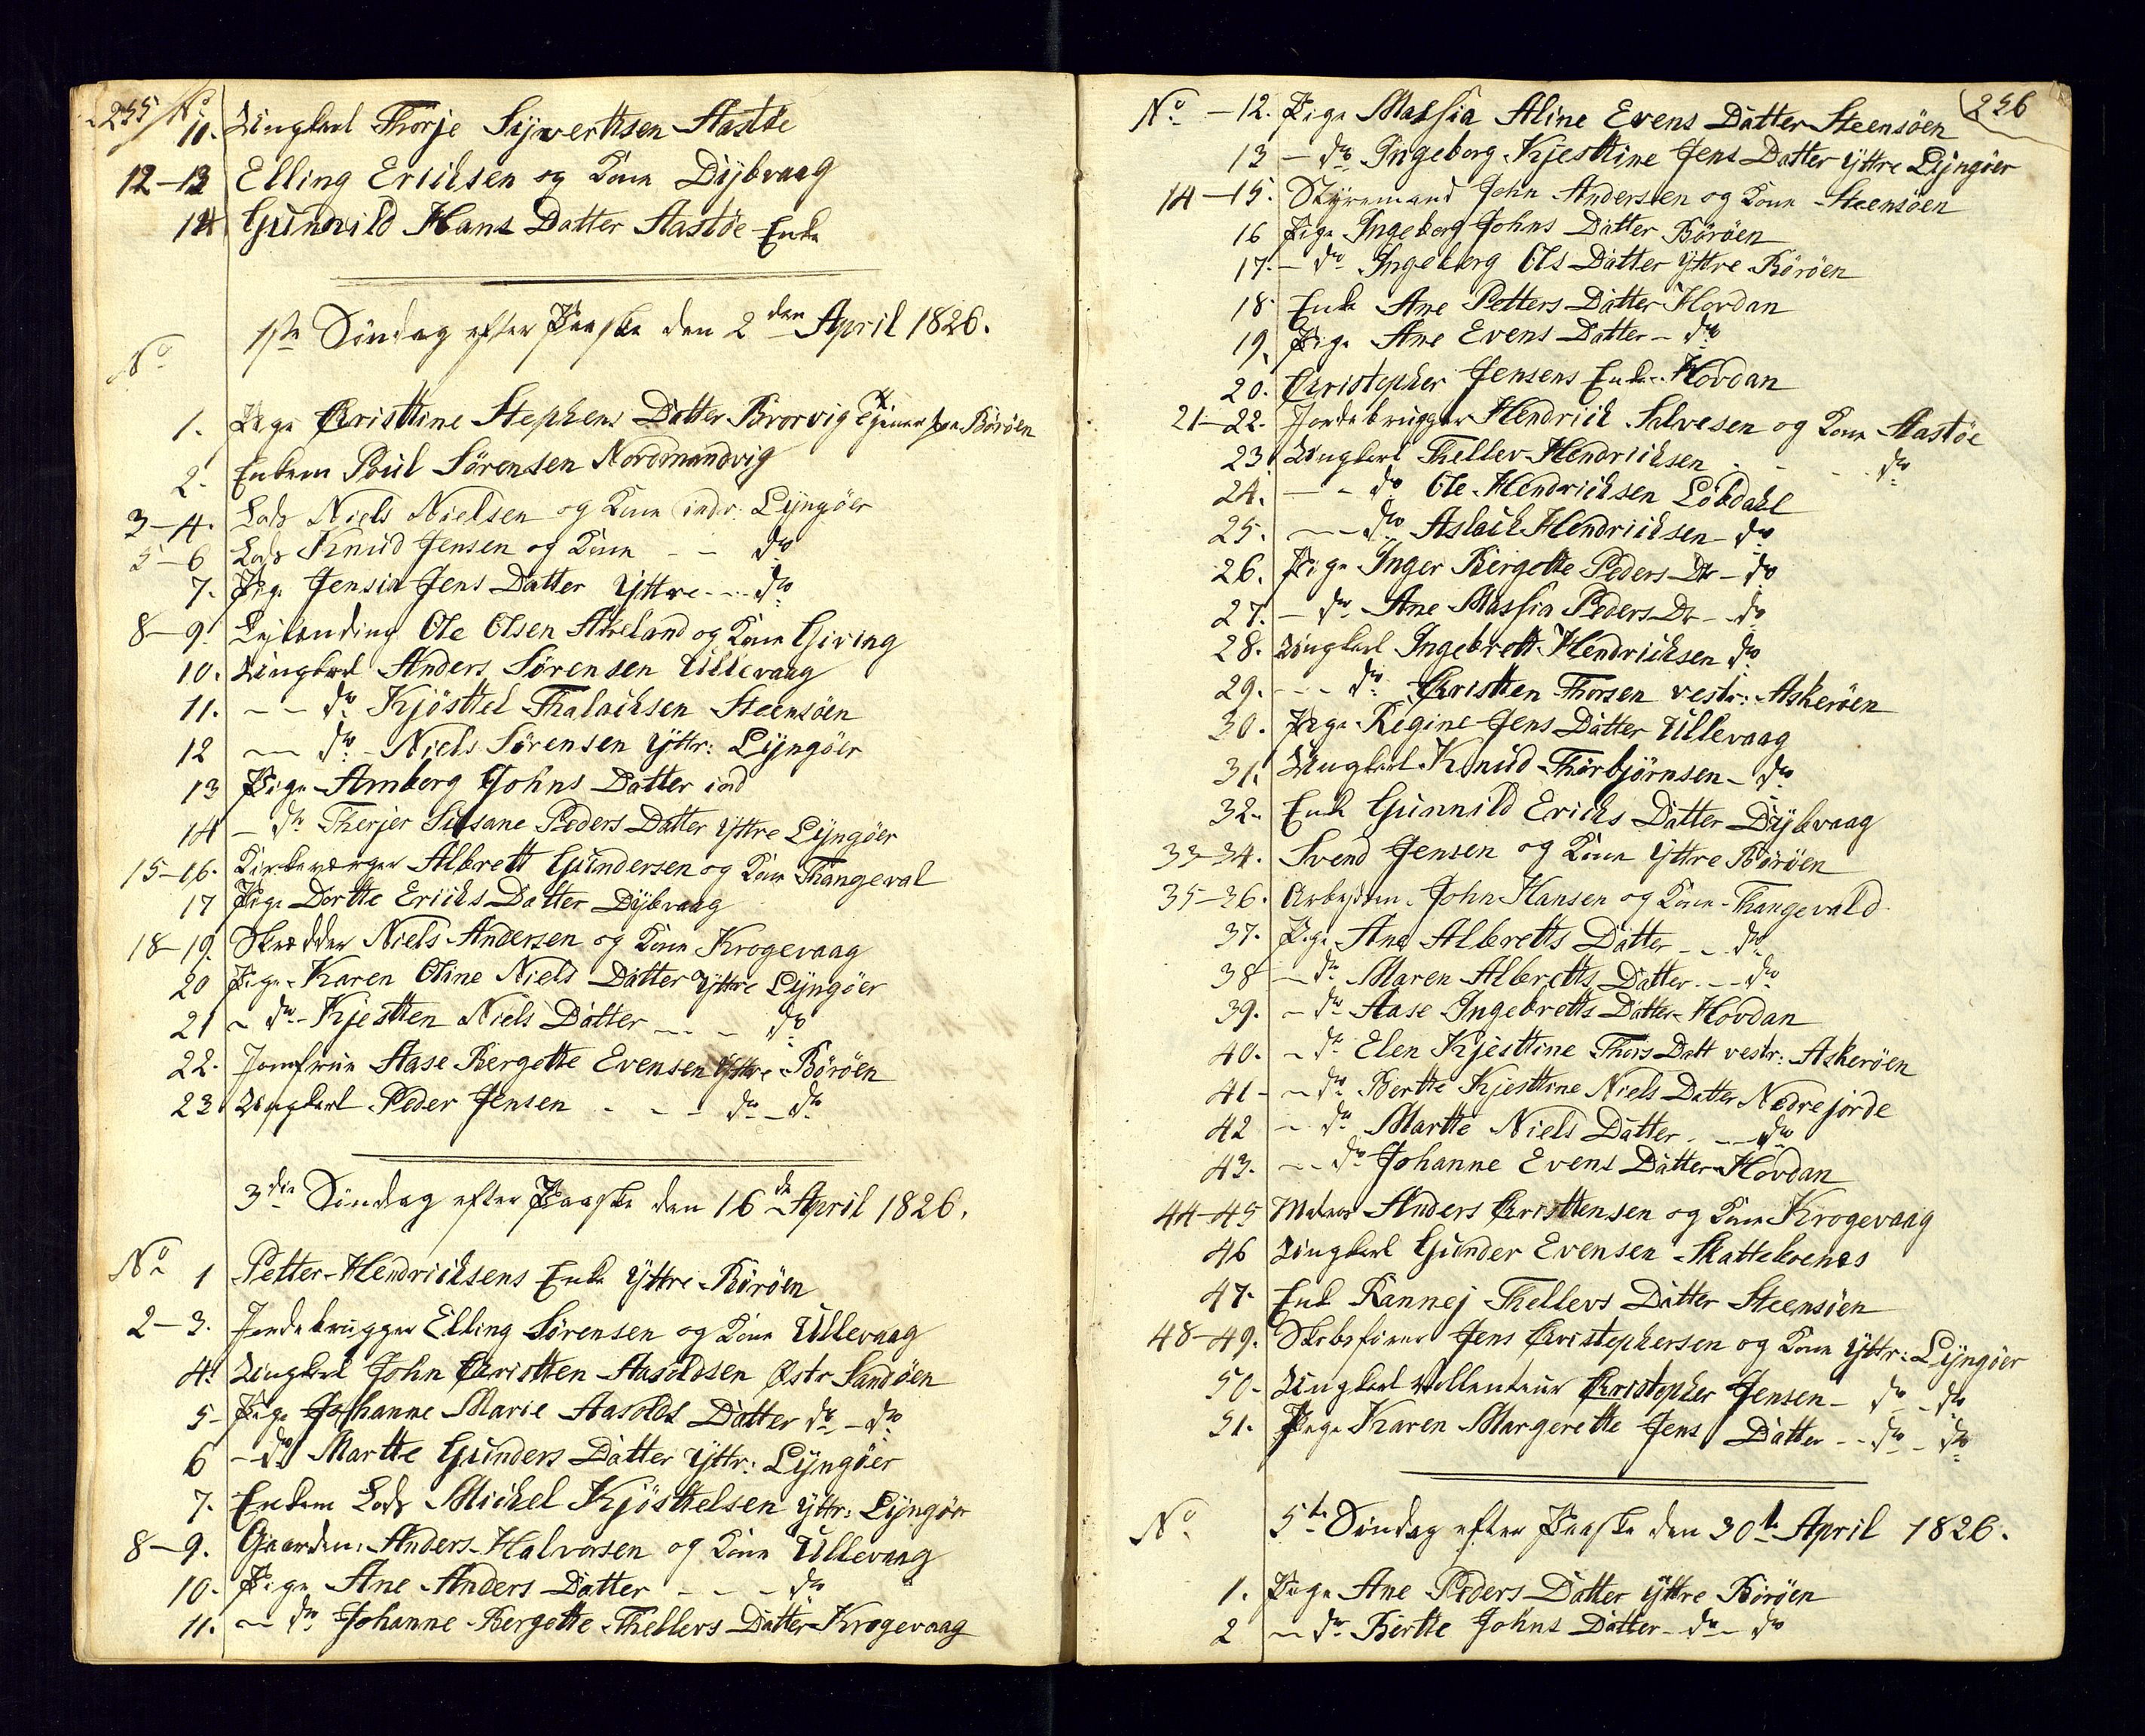 255 No
11. Ungkarl Thorje Syvertsen Aastøe
12–13 Elling Ericksen og Kone Dybvaag
14 Gunnild Hans Datter Aastøe Enke
1ste Søndag efter Paaske den 2den April 1826.
No
1. Pige Christtine Stephens Datter Brorvig tjener paa Børøen
2. Enkem Poul Sørensen Nordmandvig
3–4. Lods Niels Nielsen og Kone indr: Lyngøer
5–6 Lods Knud Jensen og Kone – – do
7. Pige Jensia Jens Datter Yttre – – do
8–9. Lejlænding Ole Olsen Akeland og Kone Giving
10. Ungkarl Anders Sørensen Ullevaag
11. – – do Kjøsttel Thalacksen Steensøen
12 – – do – Niels Sørensen Yttr: Lyngøer
13 Pige Amborg Johns Datter ind
14 – do Therjer Susane Peders Datter Yttre Lyngøer
15–16. Kirkeværger Albrett Gundersen og Kone Thangeval
17 Pige Dortte Ericks Datter Dybvaag
18–19. Skrædder Niels Andersen og Kone Krogevaag
20 Pige Karen Oline Niels Datter Yttre Lyngøer
21 – do – Kjestten Niels Datter – – – do
22. Jomfrue Aase Bergotte Evensen Yttre Børøen
23 Ungkarl Peder Jensen – – – do – do
3die Søndag efter Paaske den 16de April 1826.
No 1 Petter Hendricksens Enke Yttre Børøen
2–3. Jordebrugger Elling Sørensen og Kone Ullevaag
4. Ungkarl John Christten Aasoldsen Østr Sandøen
5– Pige Johanne Marie Aasolds Datter do – do
6 – do Martte Gunders Datter Yttr: Lyngøer
7. Enkem Lods Mickel Kjøsttelsen Yttr: Lyngør
8–9. Gaardm: Anders Halvorsen og Kone Ullevaag
10. Pige Ane Anders Datter – – – do
11. – do Johanne Bergotte Thellevs Datter Krogevaag
256
No – 12. Pige Massia Aline Evens Datter Steensøen
13 – do Ingeborg Kjesttine Jens Datter Yttre Lyngøer
14–15. Styremand John Andersen og Kone Steensøen
16 Pige Ingeborg Johns Datter Børøen
17. – do Ingeborg Ols Datter Yttre Børøen
18. Enke Ane Petters Datter Hovdan
19. Pige Ane Evens Datter – do
20. Christopher Jensens Enke Hovdan
21–22. Jordebrugger Hendrick Salvesen og Kone Aastøe
23 Ungkarl Thellev Hendricksen – – – do
24. – – do Ole Hendricksen Løvdahl
25. – – do Aslack Hendricksen – do
26. Pige Inger Bergotte Peders Dr – do
27. – do Ane Massia Peders Dr – do
28. Ungkarl Ingebrett Hendricksen do
29. – – do Christten Thorsen vestr: Askerøen
30. Pige Regine Jens Datter Ullevaag
31. Ungkarl Knud Thorbjørnsen – do
32. Enke Gunnild Ericks Datter Dybvaag
33–34. Svend Jensen og Kone Yttre Børøen
35–36. Arbejdsm. John Hansen og Kone Thangevald
37. Pige Ane Albretts Datter – – do
38 – do Maren Albretts Datter – – do
39. – do Aase Ingebretts Datter Hovdan
40. – do Elen Kjesttine Thors Datt vestr: Askerøen
41– – do Bertte Kjesttine Niels Datter Nedrejorde
42 – do Martte Niels Datter – – do
43. – – do Johanne Evens Datter Hovdan
44–45 Matros Anders Christtensen og Kone Krogevaag
46 Ungkarl Gunder Evensen Skatteboenes
47. Enke Rannej Thellevs Datter Steensøen
48–49. Skibsfører Jens Christophersen og Kone Yttr: Lyngøer
50– Ungkarl Vollenteur Christopher Jensen – do – do
51. Pige Karen Margerette Jens Datter – – do – do
No 5te Søndag efter Paaske den 30te April 1826.
1. Pige Ane Peders Datter Yttre Børøen
2 – do Bertte Johns Datter – do – do